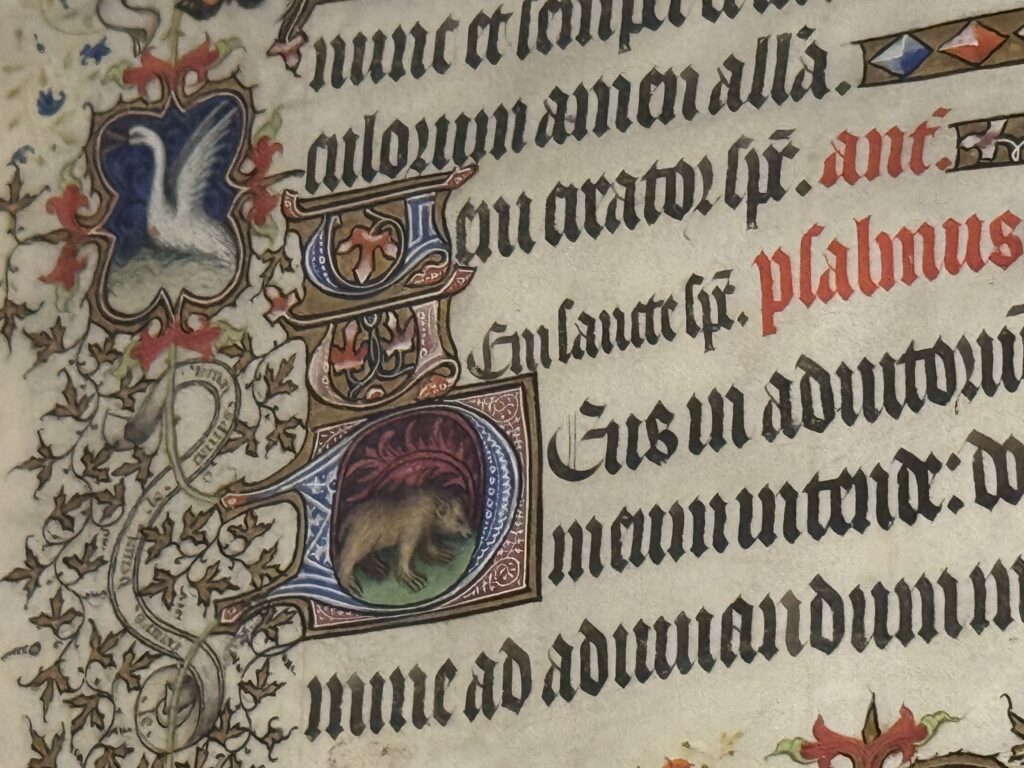 nunc et semper et in
culorum amen allā.
eni creator spū. ant.
Eni sancte spū. psalmus
Eus in adiutoriū
meum intende: do
mine ad adiuuandum m